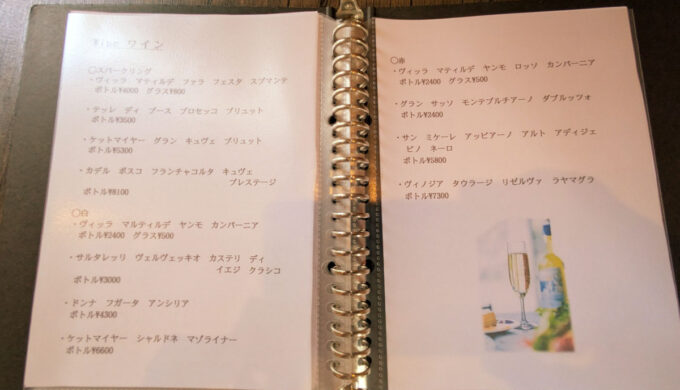 Vino ワイン
〇スパークリング
・ヴィッラ マティルデ ファラ フェスタ スプマンテ
ボトル¥4000 グラス¥800
・テッレ ディ ブース プロセッコ ブリュット
ボトル¥3500
・ケットマイヤー グラン キュヴェ ブリュット
ボトル¥5300
・カデル ボスコ フランチャコルタ キュヴェ
プレステージ
ボトル¥8100
〇白
・ヴィッラ マルティルデ ヤンモ カンパーニア
ボトル¥2400 グラス¥500
・サルタレッリ ヴェルヴェッキオ カステリ ディ
イエジ クラシコ
ボトル¥3000
・ドンナ フガータ アンシリア
ボトル¥4300
・ケットマイヤー シャルドネ マゾライナー
ボトル¥6600
〇赤
・ヴィッラ マティルデ ヤンモ ロッソ カンパーニア
ボトル¥2400 グラス¥500
・グラン サッソ モンテプルチアーノ ダブルッツォ
ボトル¥2400
・サン ミケーレ アッピアーノ アルト アディジェ
ピノ ネーロ
ボトル¥5800
・ヴィノジア タウラージ リゼルヴァ ラヤマグラ
ボトル¥7300